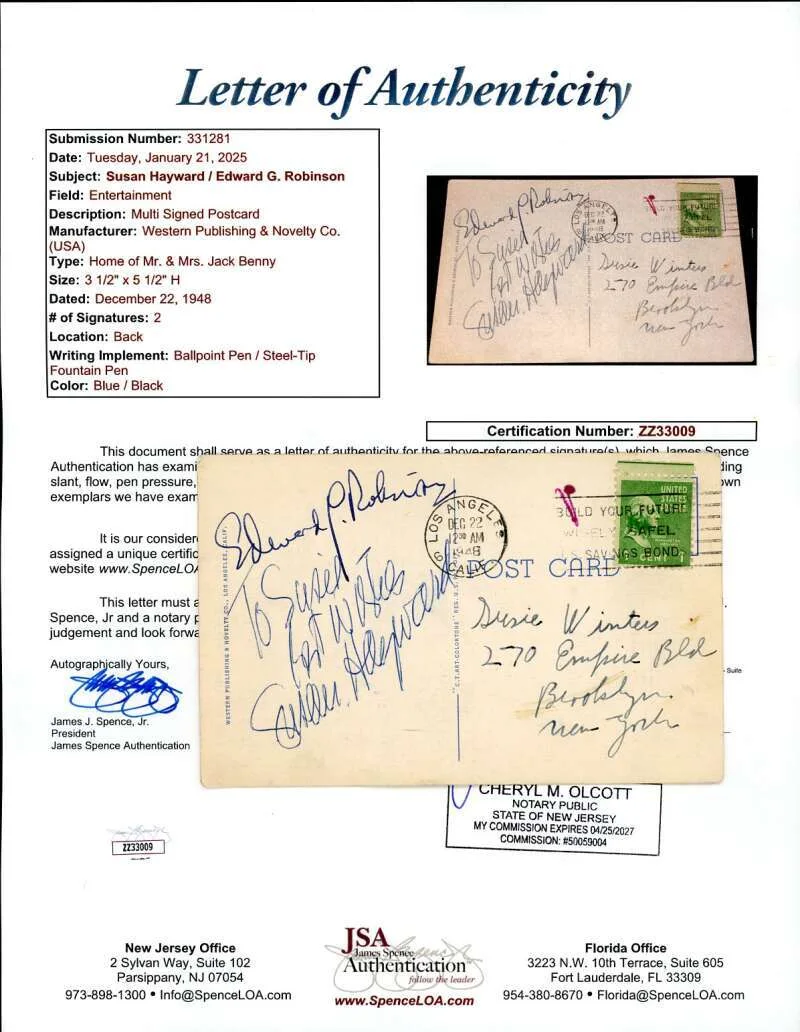 Letter of Authenticity
Submission Number: 331281
Date: Tuesday, January 21, 2025
Subject: Susan Hayward / Edward G. Robinson
Field: Entertainment
Description: Multi Signed Postcard
Manufacturer: Western Publishing & Novelty Co.
(USA)
Type: Home of Mr. & Mrs. Jack Benny
Size: 3 1/2" x 5 1/2" H
Dated: December 22, 1948
# of Signatures: 2
Location: Back
Writing Implement: Ballpoint Pen / Steel-Tip
Fountain Pen
Color: Blue / Black
Edward G. Robinson
To Susie
Best Wishes
Susan Hayward
LOS ANGELES
DEC 22
1948
CALIF.
POST CARD
Susie Winters
270 Empire Bld
Brooklyn
New York
Certification Number: ZZ33009
This document shall serve as a letter of authenticity for the above-referenced signature(s), which James Spence
Authentication has exami
ding
slant, flow, pen pressure,
own
exemplars we have exam
It is our consider
assigned a unique certific
website www.SpenceLOA
This letter must a
Spence, Jr and a notary p
judgement and look forwa
Autographically Yours,
James J. Spence, Jr.
President
James Spence Authentication
Edward G. Robinson
To Susie
Best Wishes
Susan Hayward
WESTERN PUBLISHING & NOVELTY CO., LOS ANGELES, CALIF.
LOS ANGELES
DEC 22
12 30 AM
1948
CALIF.
6
BUILD YOUR FUTURE
WISELY SAFEL
U S SAVINGS BOND
UNITED
STATES
POST CARD
"C.T. ART-COLORTONE" REG. U.S.
Susie Winters
270 Empire Bld
Brooklyn
New York
Suite
CHERYL M. OLCOTT
NOTARY PUBLIC
STATE OF NEW JERSEY
MY COMMISSION EXPIRES 04/25/2027
COMMISSION: #50059004
ZZ33009
New Jersey Office
2 Sylvan Way, Suite 102
Parsippany, NJ 07054
973-898-1300 • Info@SpenceLOA.com
JSA
James Spence
Authentication
follow the leader
www.SpenceLOA.com
Florida Office
3223 N.W. 10th Terrace, Suite 605
Fort Lauderdale, FL 33309
954-380-8670 • Florida@SpenceLOA.com